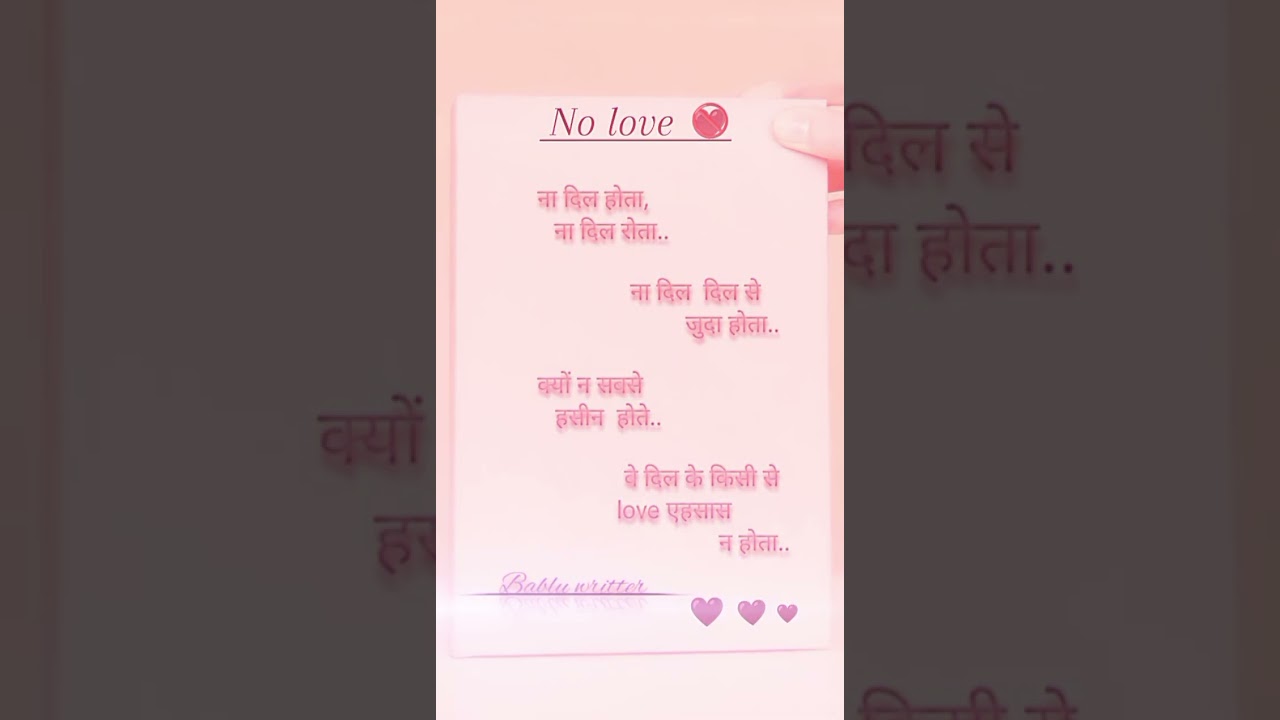 No love
ना दिल होता,
ना दिल रोता..
ना दिल दिल से
जुदा होता..
क्यों न सबसे
हसीन होते..
वे दिल के किसी से
love एहसास
न होता..
Bablu writter
दिल से
दा होता..
क्यों